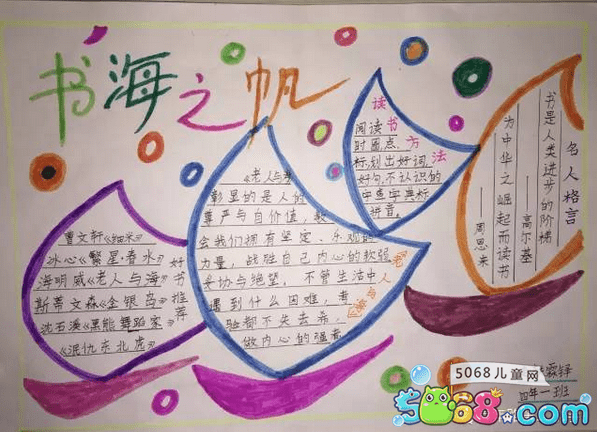 书海之帆
曹文轩《细米》
冰心《繁星·春水》
海明威《老人与海》
斯蒂文森《金银岛》
沈石溪《黑熊舞蹈家》
《泯仇东北虎》
好书推荐
《老人与海》
彰显的是人的
尊严与自价值,教
会我们拥有坚定、乐观的
力量,战胜自己内心的软弱、
妥协与绝望。不管生活中
遇到什么困难,考
验都不失去希
做内心的强者
读书方法
阅读书
时圈点、
标划出好词
好句,不认识的
字查字典标
拼音。
名人格言
书是人类进步的阶梯
——高尔基
为中华之崛起而读书
——周恩来
霖铎
四年一班
5068儿童网
5068.com